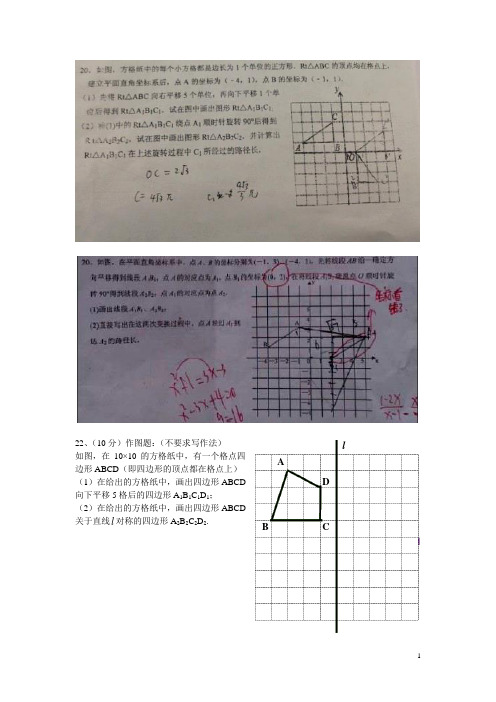 20、如图，方格纸中的每个小方格都是边长为1个单位的正方形，Rt△ABC的顶点均在格点上，
建立平面直角坐标系后，点A的坐标为（-4，1），点B的坐标为（-1，1）．
（1）先将Rt△ABC向右平移5个单位，再向下平移1个单
位后得到Rt△A₁B₁C₁．试在图中画出图形Rt△A₁B₁C₁．
（2）将(1)中的Rt△A₁B₁C₁绕点A₁顺时针旋转90°后得到
Rt△A₂B₂C₂，试在图中画出图形Rt△A₂B₂C₂．并计算出
Rt△A₁B₁C₁在上述旋转过程中C₁所经过的路径长．
OC = 2√3
y
C
A
B
x
20．如图，在平面直角坐标系中，点A、B的坐标分别为(-1，3)、(-4，1)，先将线段AB沿一确定方
向平移得到线段A₁B₁，点A的对应点为A₁，点B₁的坐标为(0，2)，在将线段A₁B₁绕点O顺时针旋
转90°得到线段A₂B₂，点A₁的对应点为点A₂．
(1)画出线段A₁B₁、A₂B₂；
(2)直接写出在这两次变换过程中，点A经过A₁到
达A₂的路径长．
A
B
x
22、（10分）作图题：（不要求写作法）
如图，在10×10的方格纸中，有一个格点四
边形ABCD（即四边形的顶点都在格点上）
（1）在给出的方格纸中，画出四边形ABCD
向下平移5格后的四边形A₁B₁C₁D₁；
（2）在给出的方格纸中，画出四边形ABCD
关于直线l对称的四边形A₂B₂C₂D₂．
l
A
D
B
C
1